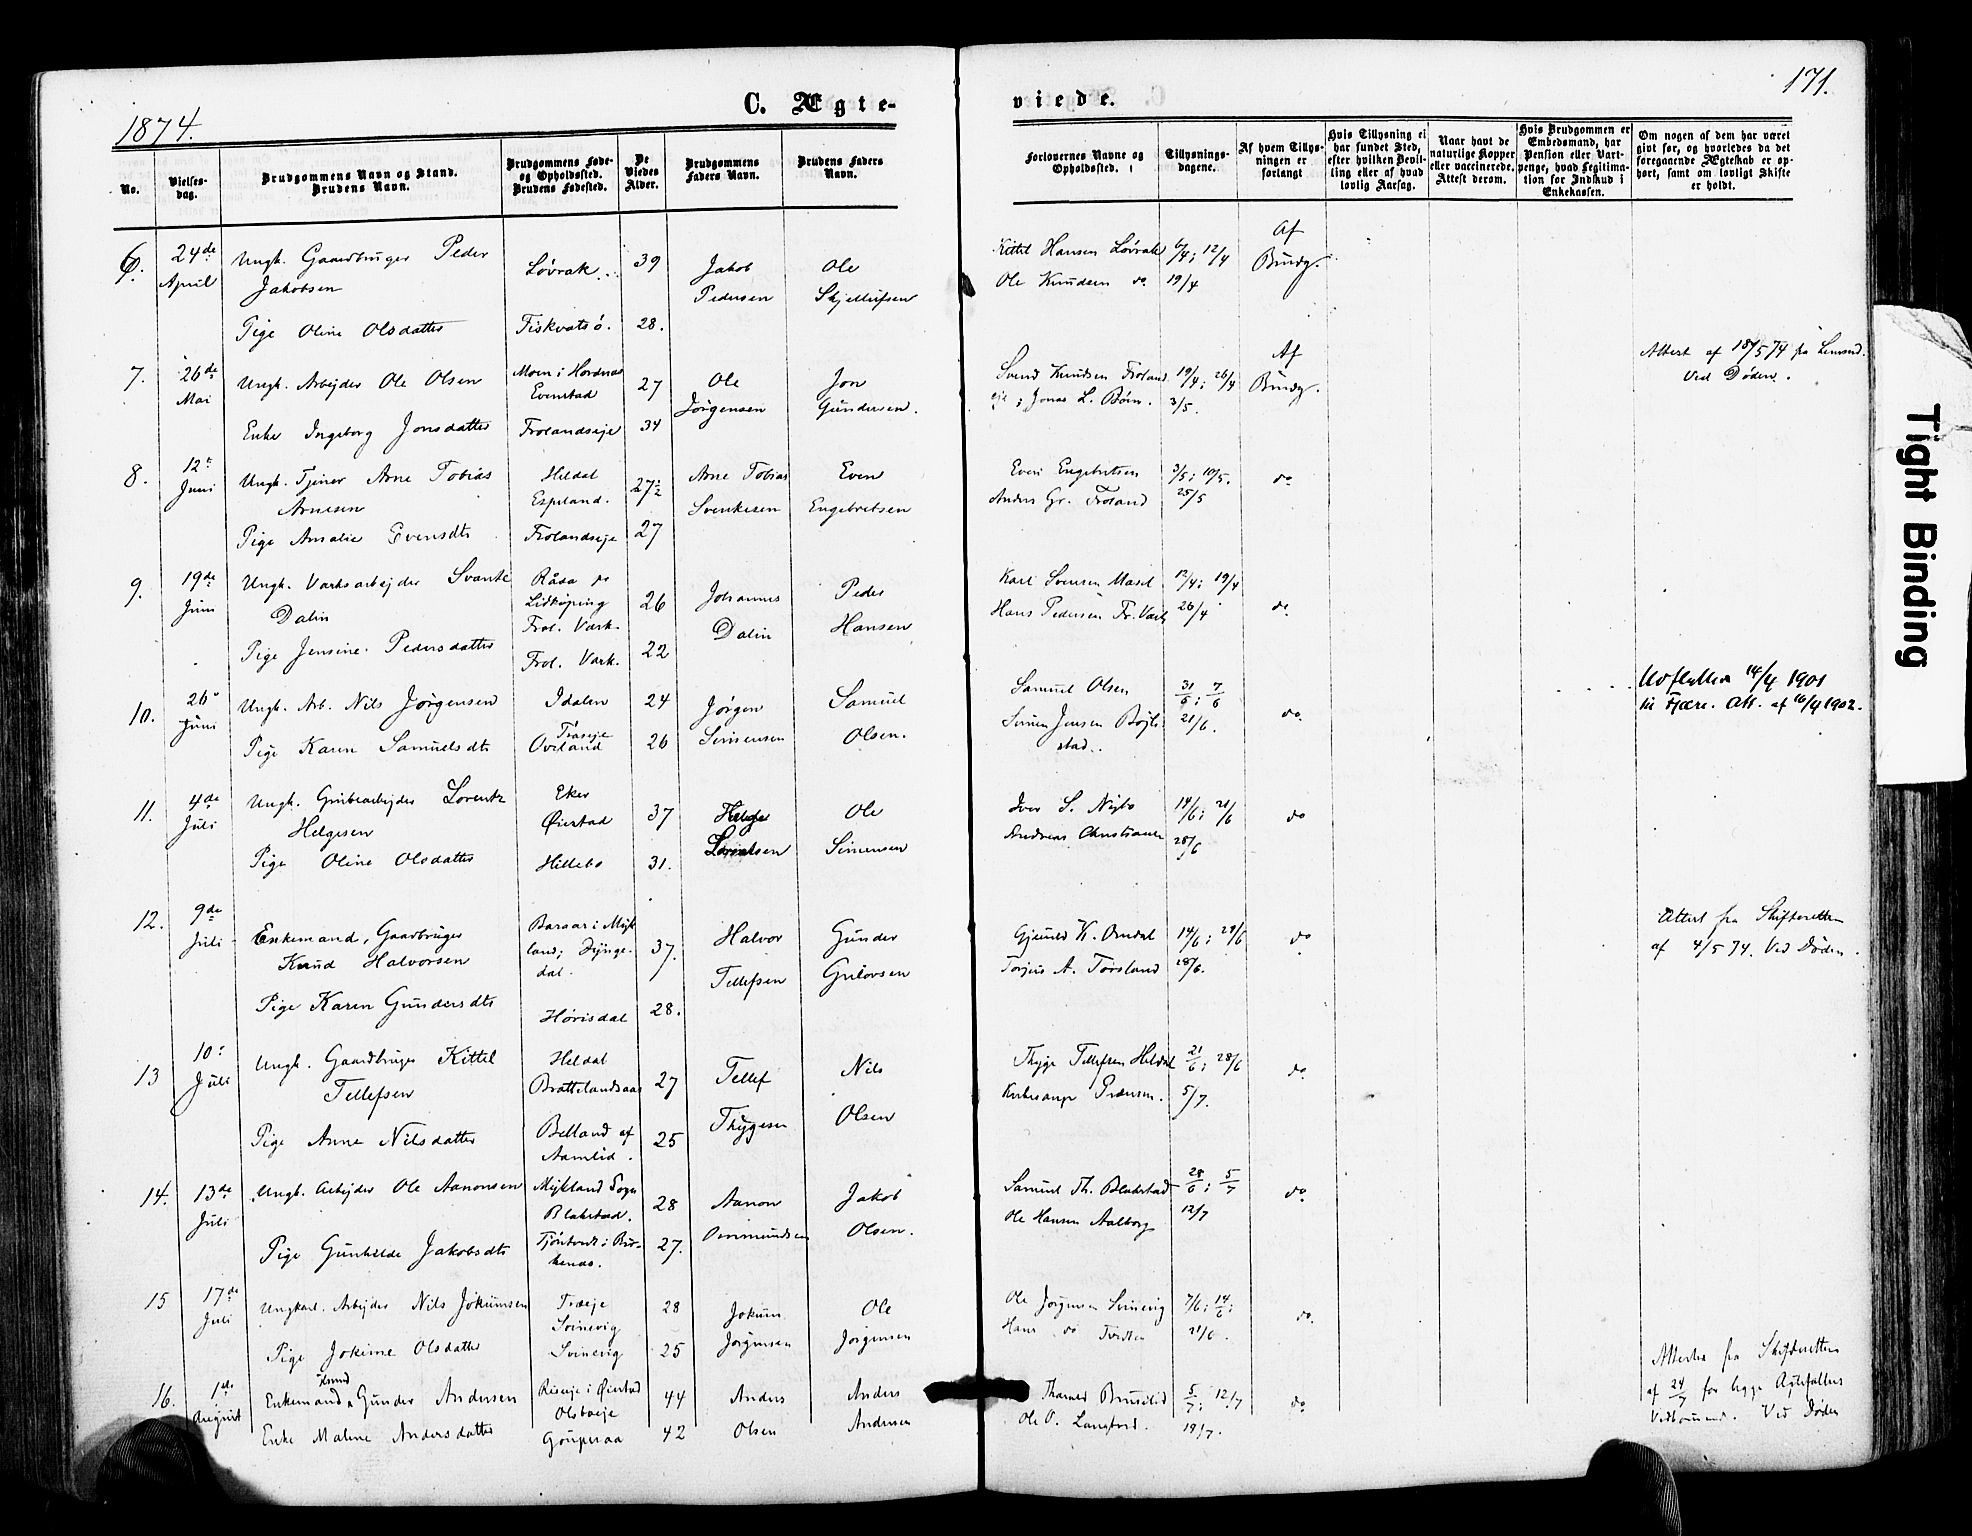 1874.
C. Ægte-
No.
Vielses-
dag.
Brudgommens Navn og Stand.
Brudens Navn.
Brudgommens Føde-
og Opholdssted.
Brudens Fødested.
De
Viedes
Alder.
Brudgommens
Faders Navn.
Brudens Faders
Navn.
6.
24de
April
Ungk. Gaardbruger Peder
Jakobsen
Pige Oline Olsdatter
Løvrak
Fiskvatsö.
39
28.
Jakob
Pedersen
Ole
7.
26de
Mai
Ungk. Arbejder Ole Olsen
Enke Ingeborg Jonsdatter
Moen i Hordnæs
Evenstad
Frolandseje
27
34
Ole
Jørgensen
Jon
Gundersen.
8.
12te
Juni
Ungk. Tjener Arne Tobias
Arnesen
Pige Amalie Evensdt
Heldal
Espeland.
Frolandseje
27½
27
Arne Tobias
Svenkesen
Even
Engebretsen
9.
19de
Juni
Ungk. Værksarbejder Svante
Dalin
Pige Jensine Pedersdatter
Råda
Lidköping
Frol. Værk.
Frol. Værk.
26
22
Johannes
Dalin
Peder
Hansen
10.
26
Juni
Ungk. Arb. Nils Jørgensen
Pige Karen Samuelsdt
Idalen
Træseje
Oveland
24
26
Jørgen
Simensen
Samuel
Olsen.
11.
4de
Juli
Ungk. Grubearbejder Lorentz
Helgesen
Pige Oline Olsdatter
Eker
Øiestad
Hillebo
37
31.
Helge
Lorentsen
Ole
Simensen
12.
9de
Juli
Enkemand, Gaardbruger
Knud Halvorsen
Pige Karen Gundersdt
Basaar i Myk
land; Dynge-
dal.
Hørisdal
37.
28.
Halvor
Tellefsen
Gunder
Gulovsen
13
10
Juli
Ungk. Gaardbruger Kittel
Tellefsen
Pige Anne Nilsdatter
Heldal
Brattelandsaas
Belland af
Aamlid.
27
25
Tellef
Thygesen
Nils
Olsen
14.
13de
Juli
Ungk. Arbejder Ole Aanonsen
Pige Gunhilde Jakobsdt
Mykland Sogn
Blakstad.
28
27.
Aanon
Ommundsen
Jakob
Olsen.
15
17de
Juli
Ungkarl. Arbejder Nils Jokumsen
Pige Jokime Olsdatter
Træeje
Svinevig
Svinevig
28
25
Jokum
Jørgensen
Ole
Jørgensen
16.
1ste
August
Enkemand Gunder Andersen
Enke Maline Andersdatter
Riseeje i Øiestad
Goüperaa
44
42
Anders
Olsen
Anders
Andersen
viede.
171.
Forlovernes Navne og
Opholdssted.
Tillysnings-
dagene.
Af hvem Tillys-
ningen er
forlangt
Hvis Tillysning ei
har fundet Sted,
efter hvilken Bevil-
ling eller af hvad
lovlig Aarsag.
Naar havt de
naturlige Kopper
eller vaccinerede.
Attest derom.
Hvis Brudgommen er
Embedsmand, har
Pension eller Vart-
penge, hvad Legitima-
tion for Indskud i
Enkekassen.
Om nogen af dem har været
gift før, og hvorledes da det
foregaaende Ægteskab er op-
hørt, samt om lovligt Skifte
er holdt.
Kittel Hansen Løvrak
Ole Knudsen do
6/4; 12/4
19/4
Af
Brudg.
Svend Knudsen Froland
eje; Jonas L. Bøin.
19/4; 26/4
3/5.
Af
Brudg.
Attest af 18/5 74 fra Lensmd.
Ved Døden.
Even Engebretsen
Anders Gr. Froland
3/5; 10/5.
25/5
do
Karl Svensen Masel
Hans Pedersen Fr. Værk
12/4; 19/4
26/4
do
Samuel Olsen
Simen Jensen Bøjle
stad.
31/5; 7/6
21/6.
do.
Udflyttede 14/4 1901
til Fjære. Att. af 16/4 1902.
Iver S. Nybo
Andreas Christiansen
14/6; 21/6
28/6
do
Gjeruld K. Omdal
Torjus A. Torsland
14/6; 24/6
28/6.
do
Attest fra Skifteretten
af 4/5 74. Ved Døden.
Thyge Tellefsen Heldal
Kirkesanger Pedersen.
21/6; 28/6
5/7.
do
Samuel Th. Blakstad
Ole Hansen Aalborg
28/6; 5/7
12/7
do
Ole Jørgensen Svinevig
Hans do Tveiten
7/6; 14/6;
21/6.
do.
Tharald Bruselid
Ole O. Langford.
5/7; 12/7
19/7.
do
Attester fra Skifteretten
af 24/7 for begge Ægtefæller
Vedkommend. Ved Døden
Tight Binding